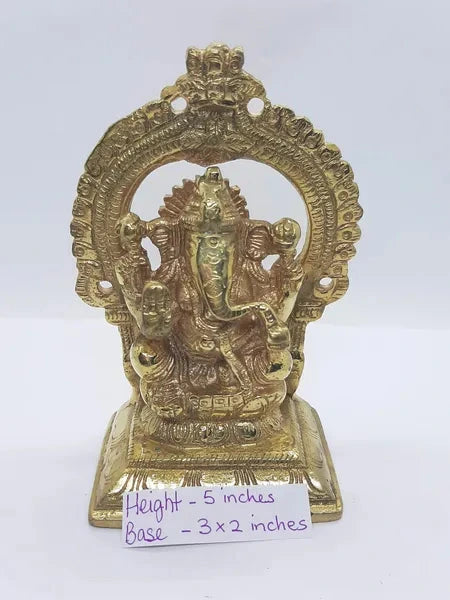 Height - 5 inches
Base - 3 x 2 inches